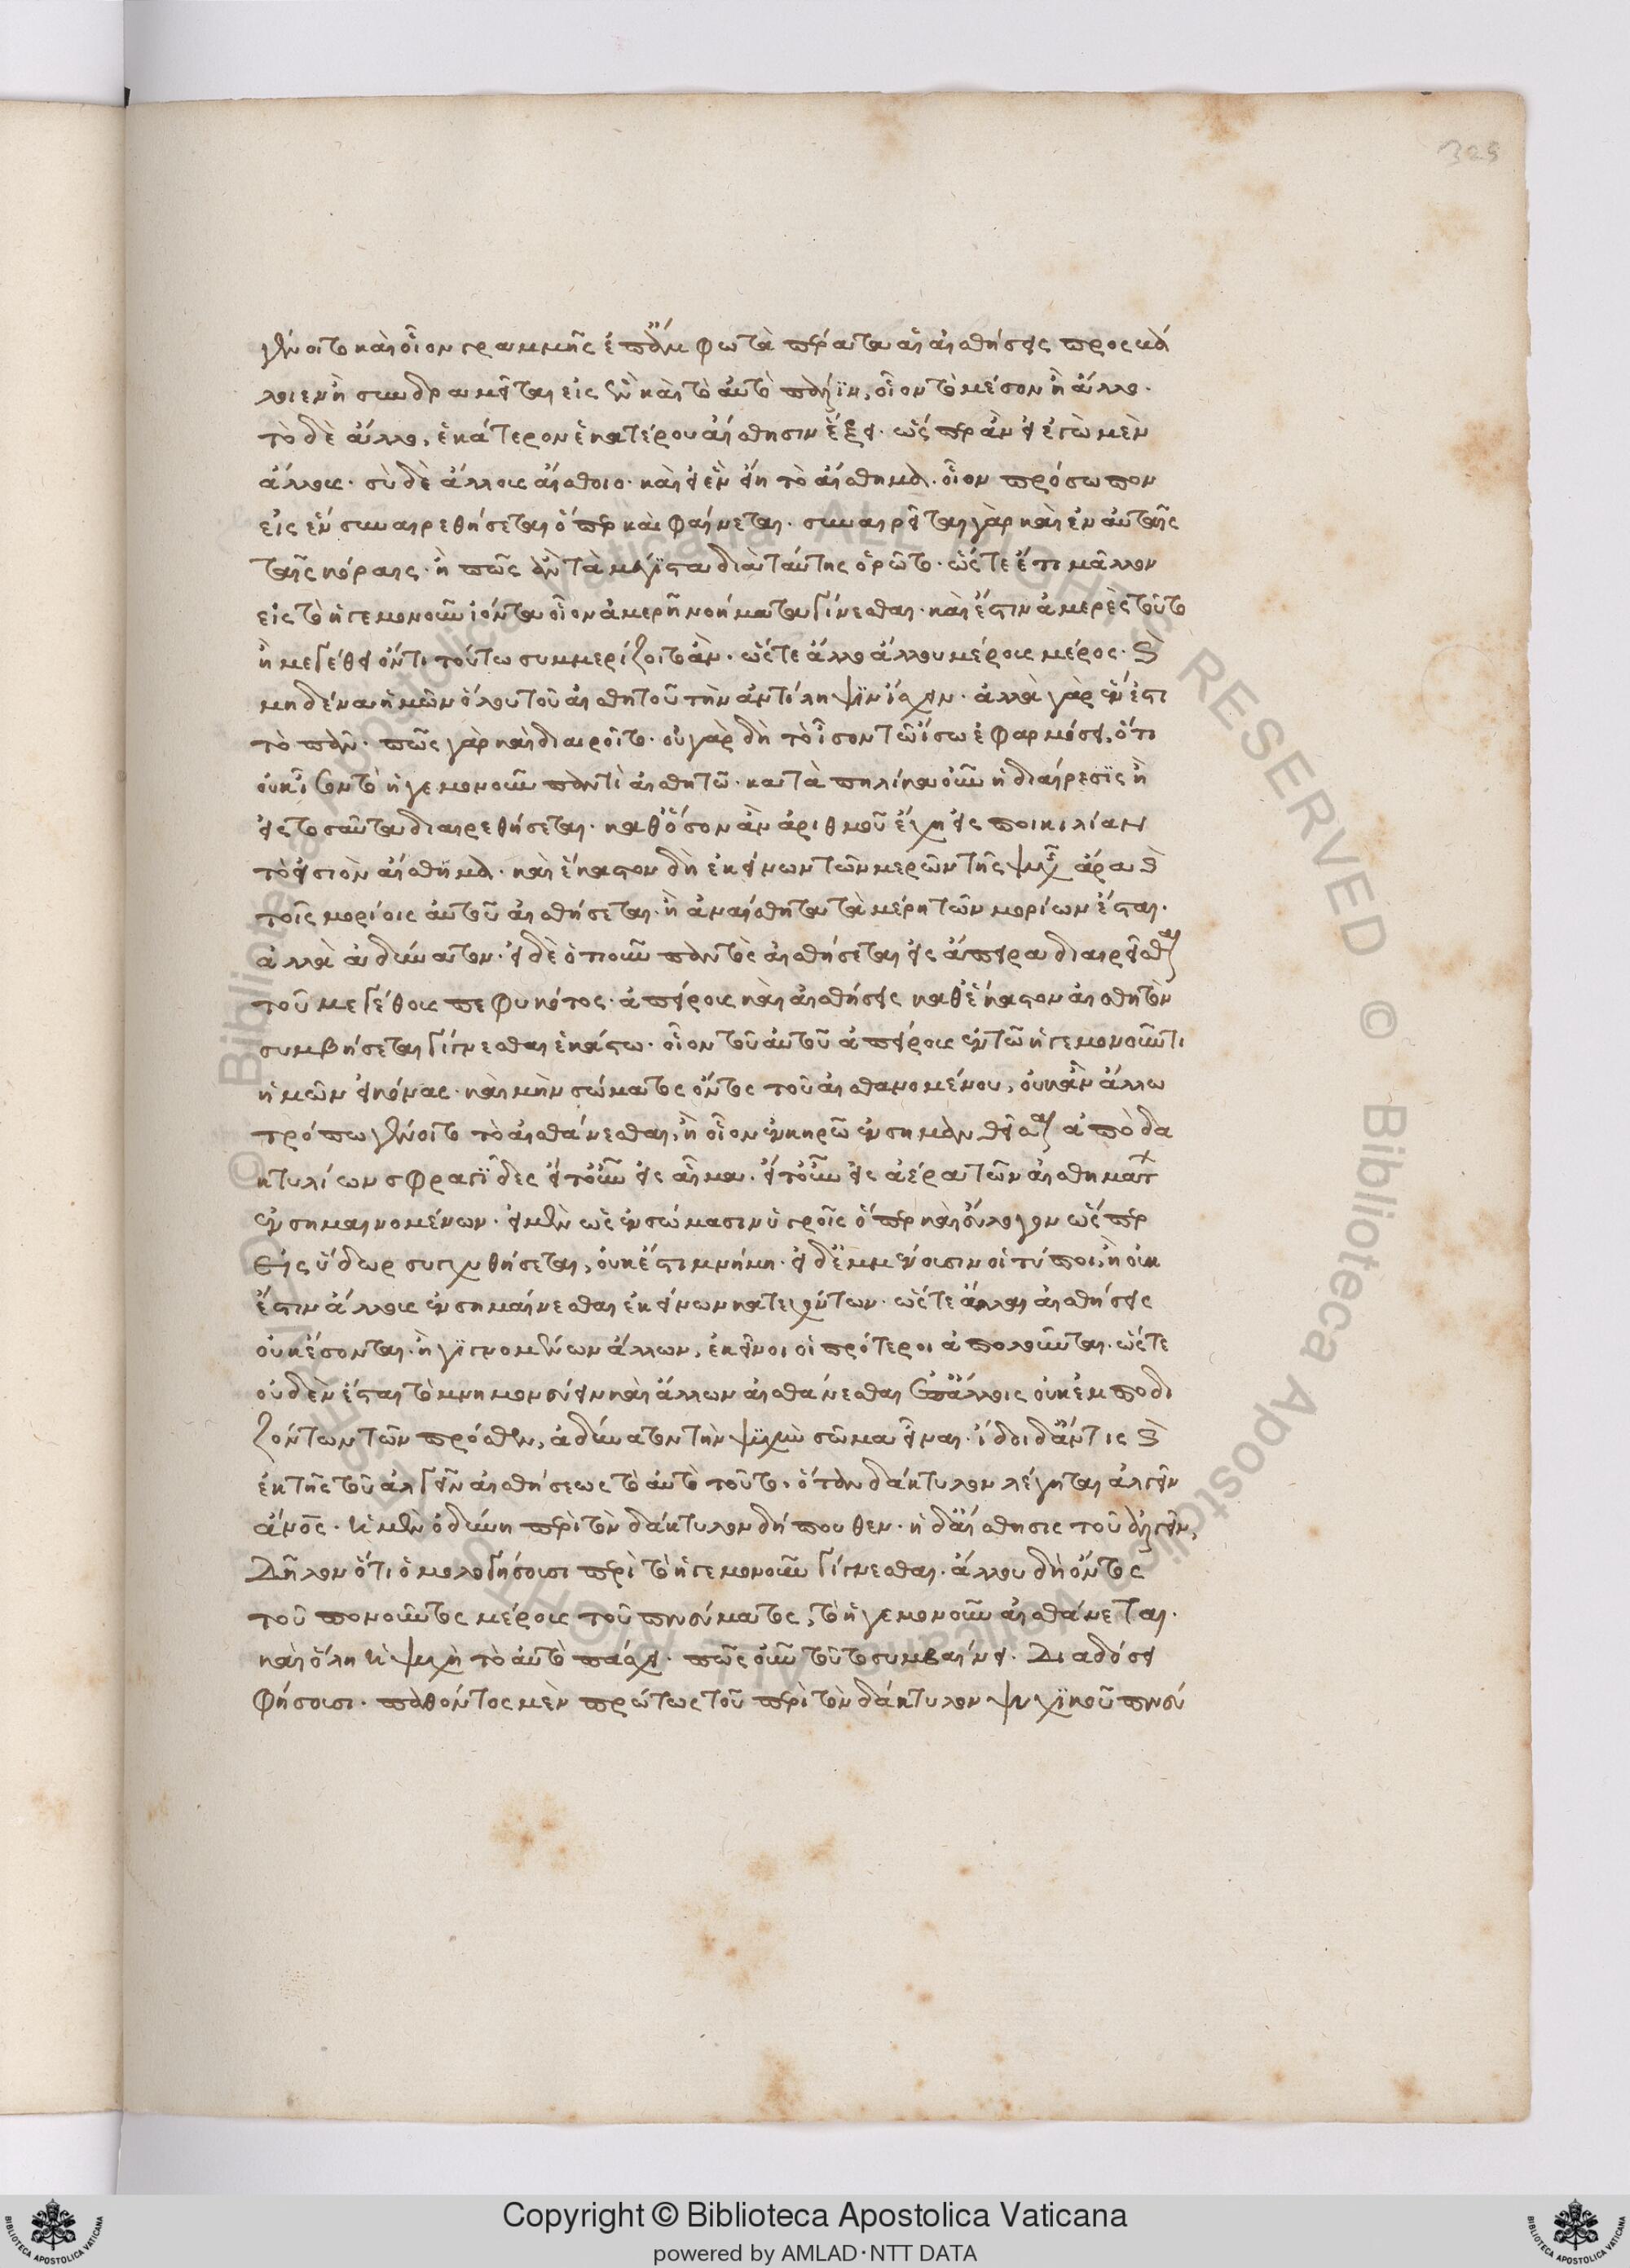 329
γένοιτο καὶ οἷον γραμμῆς ἐπ' ἄμφω τὰ πέρατα αἱ αἰσθήσεις προσβάλ
λοιεν ἢ συνδραμεῖται εἰς ἓν καὶ τὸ αὐτὸ πάλιν, οἷον τὸ μέσον ἢ ἄλλο.
τὸ δὲ ἄλλο, ἑκάτερον ἑκατέρου αἴσθησιν ἕξει. ὥσπερ ἂν εἰ ἐγὼ μὲν
ἄλλου. σὺ δὲ ἄλλου αἴσθοιο. καὶ εἰ ἓν εἴη τὸ αἴσθημα. οἷον πρόσωπον
εἰς ἓν συναιρεθήσεται ὅπερ καὶ φαίνεται. συναιρεῖται γὰρ καὶ ἐν αὐταῖς
ταῖς κόραις. ἢ πῶς ἂν τὰ μέγιστα διὰ ταύτης ὁρῷτο. ὥστε ἔτι μᾶλλον
εἰς τὸ ἡγεμονοῦν ἰόντα οἷον ἀμερῆ νοήματα γίνεσθαι. καὶ ἔστιν ἀμερὲς τοῦτο
ἢ μεγέθει ὄντι τούτω συμμερίζοιτο ἄν. ὥστε ἄλλο ἄλλου μέρους μέρος. καὶ
μηδένα ἡμῶν ὅλου τοῦ αἰσθητοῦ τὴν ἀντίληψιν ἴσχειν. ἀλλὰ γὰρ ἕν ἐστι
τὸ πᾶν. πῶς γὰρ καὶ διαιροῖτο. οὐ γὰρ δὴ τὸ ἴσον τῶ ἴσω ἐφαρμόσει, ὅτι
οὐκ ἴσον τὸ ἡγεμονοῦν παντὶ αἰσθητῶ. κατὰ πηλίκα οὖν ἡ διαίρεσις ἢ
εἰς τοσαῦτα διαιρεθήσεται. καθ' ὅσον ἂν ἀριθμοῦ ἔχη εἰς ποικιλίαν
τὸ εἰσιὸν αἴσθημα. καὶ ἕκαστον δὴ ἐκείνων τῶν μερῶν τῆς ψυχῆς ἄρα καὶ
τοῖς μορίοις αὐτοῦ αἰσθήσεται. ἢ ἀναίσθητα τὰ μέρη τῶν μορίων ἔσται.
ἀλλὰ ἀδύνατον. εἰ δὲ ὁτιοῦν παντὸς αἰσθήσεται εἰς ἄπειρα διαιρεῖσθαι
τοῦ μεγέθους πεφυκότος. ἀπείρους καὶ αἰσθήσεις καθ' ἕκαστον αἰσθητὸν
συμβήσεται γίγνεσθαι ἑκάστω. οἷον τοῦ αὐτοῦ ἀπείρους ἐν τῶ ἡγεμονοῦντι
ἡμῶν εἰκόνας. καὶ μὴν σώματος ὄντος τοῦ αἰσθανομένου, οὐκ ἂν ἄλλω
τρόπω γένοιτο τὸ αἰσθάνεσθαι, ἢ οἷον ἐν κηρῶ ἐνσημανθεῖσαι ἀπὸ δα
κτυλίων σφραγῖδες εἴτ' οὖν εἰς αἷμα. εἴτ' οὖν εἰς ἀέρα τῶν αἰσθημάτων
ἐνσημαινομένων. εἰ μὲν ὡς ἐν σώμασιν ὑγροῖς ὅπερ καὶ εὔλογον ὥσπερ
εἰς ὕδωρ συγχυθήσεται, οὐκ ἔσται μνήμη. εἰ δὲ μένουσιν οἱ τύποι, ἢ οὐκ
ἔστιν ἄλλους ἐνσημαίνεσθαι ἐκείνων κατεχόντων. ὥστε ἄλλαι αἰσθήσεις
οὐκ ἔσονται. ἢ γιγνομένων ἄλλων, ἐκεῖνοι οἱ πρότεροι ἀπολοῦνται. ὥστε
οὐδὲν ἔσται τὸ μνημονεύειν καὶ ἄλλων αἰσθάνεσθαι ἐπ' ἄλλοις οὐκ ἐμποδι
ζόντων τῶν πρόσθεν, ἀδύνατον τὴν ψυχὴν σῶμα εἶναι. ἴδοι δ' ἄν τις καὶ
ἐκ τῆς τοῦ ἀλγεῖν αἰσθήσεως τὸ αὐτὸ τοῦτο. ὅταν δάκτυλον λέγηται ἀλγεῖν
ἄνος. ἡ μὲν ὀδύνη περὶ τὸν δάκτυλον δήπουθεν. ἡ δ' αἴσθησις τοῦ ἀλγεῖν,
Δῆλον ὅτι ὁμολογήσουσι περὶ τὸ ἡγεμονοῦν γίγνεσθαι. ἄλλου δὴ ὄντος
τοῦ πονοῦντος μέρους τοῦ πνεύματος, τὸ ἡγεμονοῦν αἰσθάνεται.
καὶ ὅλη ἡ ψυχὴ τὸ αὐτὸ πάσχει. πῶς οὖν τοῦτο συμβαίνει. Διαδόσει
φήσουσι. παθόντος μὲν πρώτως τοῦ περὶ τὸν δάκτυλον ψυχικοῦ πνεύ
© Biblioteca Apostolica Vaticana ALL RIGHTS RESERVED
Copyright © Biblioteca Apostolica Vaticana
powered by AMLAD·NTT DATA
BIBLIOTECA APOSTOLICA VATICANA
BIBLIOTECA APOSTOLICA VATICANA